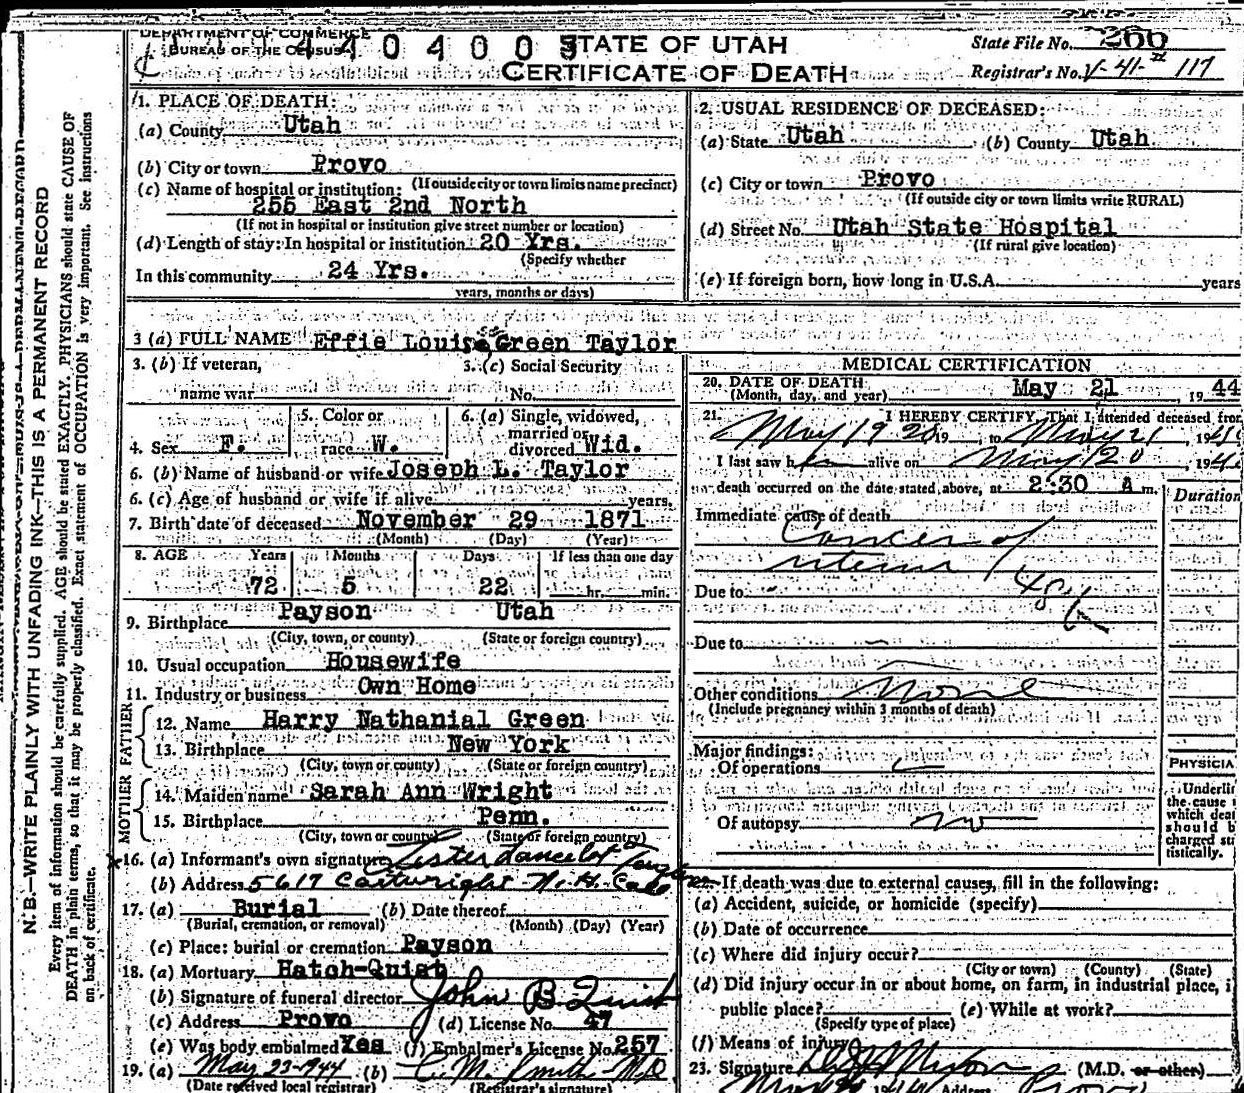 DEPARTMENT OF COMMERCE
BUREAU OF THE CENSUS
4 4 0 4 0 0 3
STATE OF UTAH
CERTIFICATE OF DEATH
State File No. 266
Registrar's No. V-41-II 117
1. PLACE OF DEATH:
(a) County Utah
(b) City or town Provo
(If outside city or town limits name precinct)
(c) Name of hospital or institution:
255 East 2nd North
(If not in hospital or institution give street number or location)
(d) Length of stay: In hospital or institution 20 Yrs.
(Specify whether
In this community 24 Yrs.
years, months or days)
2. USUAL RESIDENCE OF DECEASED:
(a) State Utah (b) County Utah
(c) City or town Provo
(If outside city or town limits write RURAL)
(d) Street No. Utah State Hospital
(If rural give location)
(e) If foreign born, how long in U.S.A. years
3 (a) FULL NAME Effie Louise Green Taylor
3. (b) If veteran,
name war
3. (c) Social Security
No.
4. Sex F.
5. Color or
race W.
6. (a) Single, widowed,
married or
divorced Wid.
6. (b) Name of husband or wife Joseph L. Taylor
6. (c) Age of husband or wife if alive years.
7. Birth date of deceased November 29 1871
(Month) (Day) (Year)
8. AGE Years Months Days If less than one day
72 5 22 hr. min.
9. Birthplace Payson Utah
(City, town, or county) (State or foreign country)
10. Usual occupation Housewife
11. Industry or business Own Home
FATHER
12. Name Harry Nathanial Green
13. Birthplace New York
(City, town or county) (State or foreign country)
MOTHER
14. Maiden name Sarah Ann Wright
15. Birthplace Penn.
(City, town or county) (State or foreign country)
16. (a) Informant's own signature Lester Lancelot Taylor
(b) Address 5617 Cartwright N.H. Calif
17. (a) Burial (b) Date thereof
(Burial, cremation, or removal) (Month) (Day) (Year)
(c) Place: burial or cremation Payson
18. (a) Mortuary Hatch-Quist
(b) Signature of funeral director John B. Quist
(c) Address Provo (d) License No. 47
(e) Was body embalmed Yes (f) Embalmer's License No. 257
19. (a) May 23-1944 (b) C. M. Smith M.D
(Date received local registrar) (Registrar's signature)
MEDICAL CERTIFICATION
20. DATE OF DEATH May 21 , 1944
(Month, day, and year)
21. I HEREBY CERTIFY, That I attended deceased from
May 19 19 , to May 21 , 19
I last saw h alive on May 20 , 194
death occurred on the date stated above, at 2:30 A m.
Duration
Immediate cause of death
Cancer of
uterus
48b
Due to
Due to
Other conditions None
(Include pregnancy within 3 months of death)
Major findings:
Of operations
Of autopsy no
PHYSICIA
Underli
the cause
which deat
should b
charged st
tistically.
22. If death was due to external causes, fill in the following:
(a) Accident, suicide, or homicide (specify)
(b) Date of occurrence
(c) Where did injury occur?
(City or town) (County) (State)
(d) Did injury occur in or about home, on farm, in industrial place, i
public place? (e) While at work?
(Specify type of place)
(f) Means of injury
23. Signature (M.D. or other)
Address Provo
N. B.—WRITE PLAINLY WITH UNFADING INK—THIS IS A PERMANENT RECORD
Every item of information should be carefully supplied. AGE should be stated EXACTLY. PHYSICIANS should state CAUSE OF
DEATH in plain terms, so that it may be properly classified. Exact statement of OCCUPATION is very important. See instructions
on back of certificate.